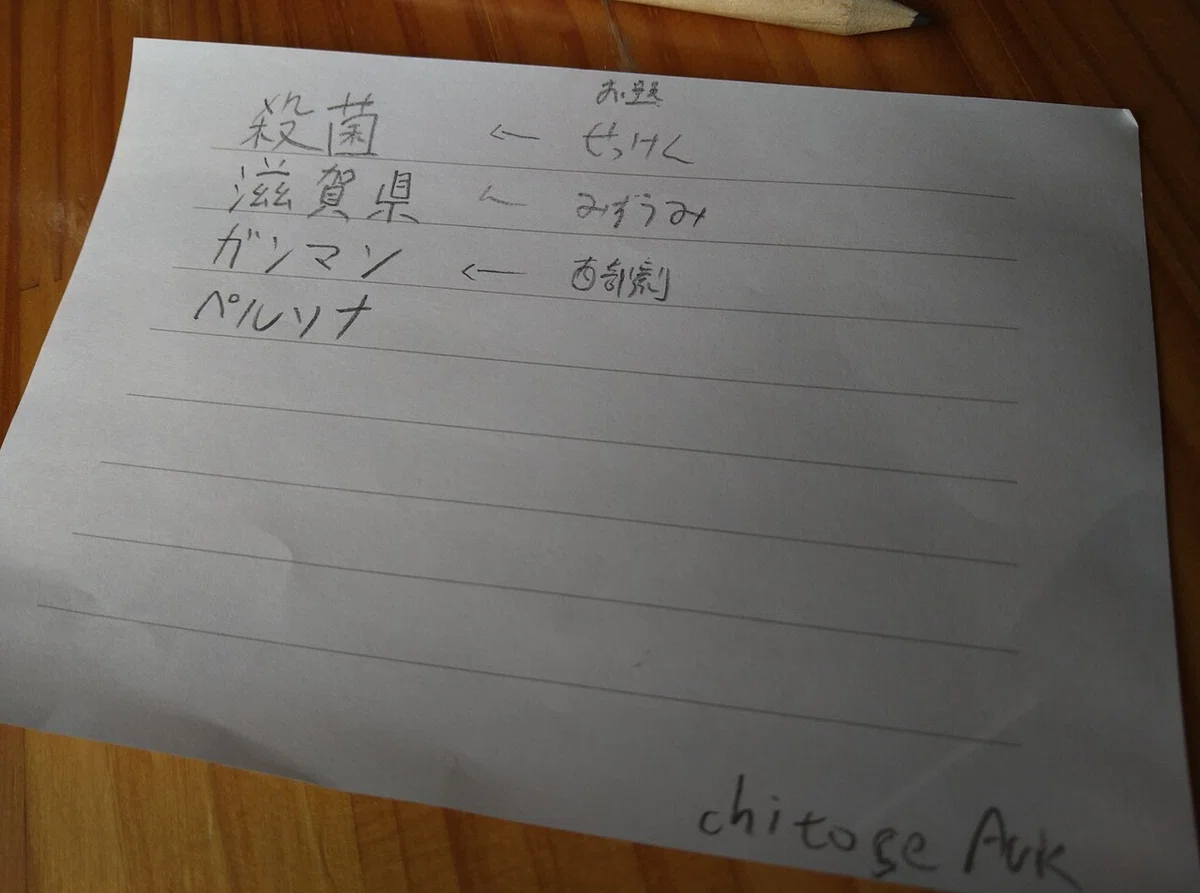 お題
殺菌 ← せっけん
滋賀県 ← みずうみ
ガンマン ← 西部劇
ペルソナ
chitoge Auk